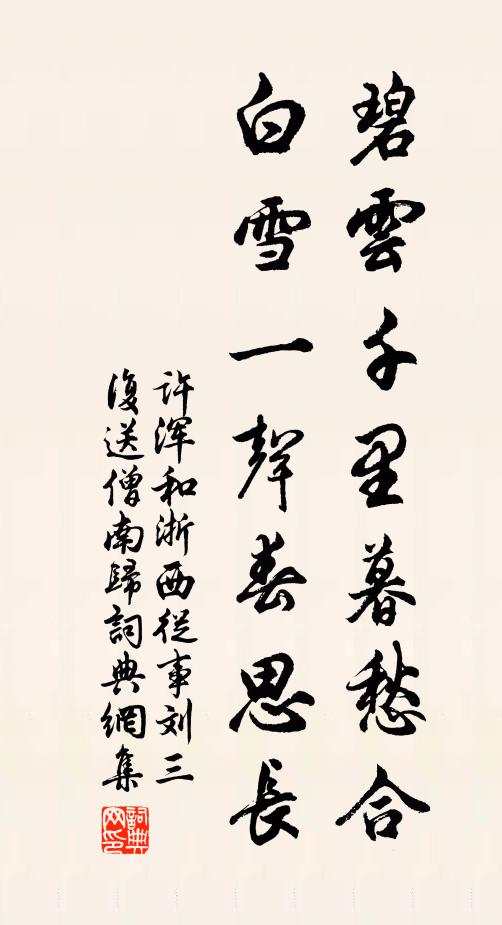 碧雲千里暮愁合
白雪一聲春思長
许浑和浙西從事刘三
復送僧南歸詞典網集
詞典
网印